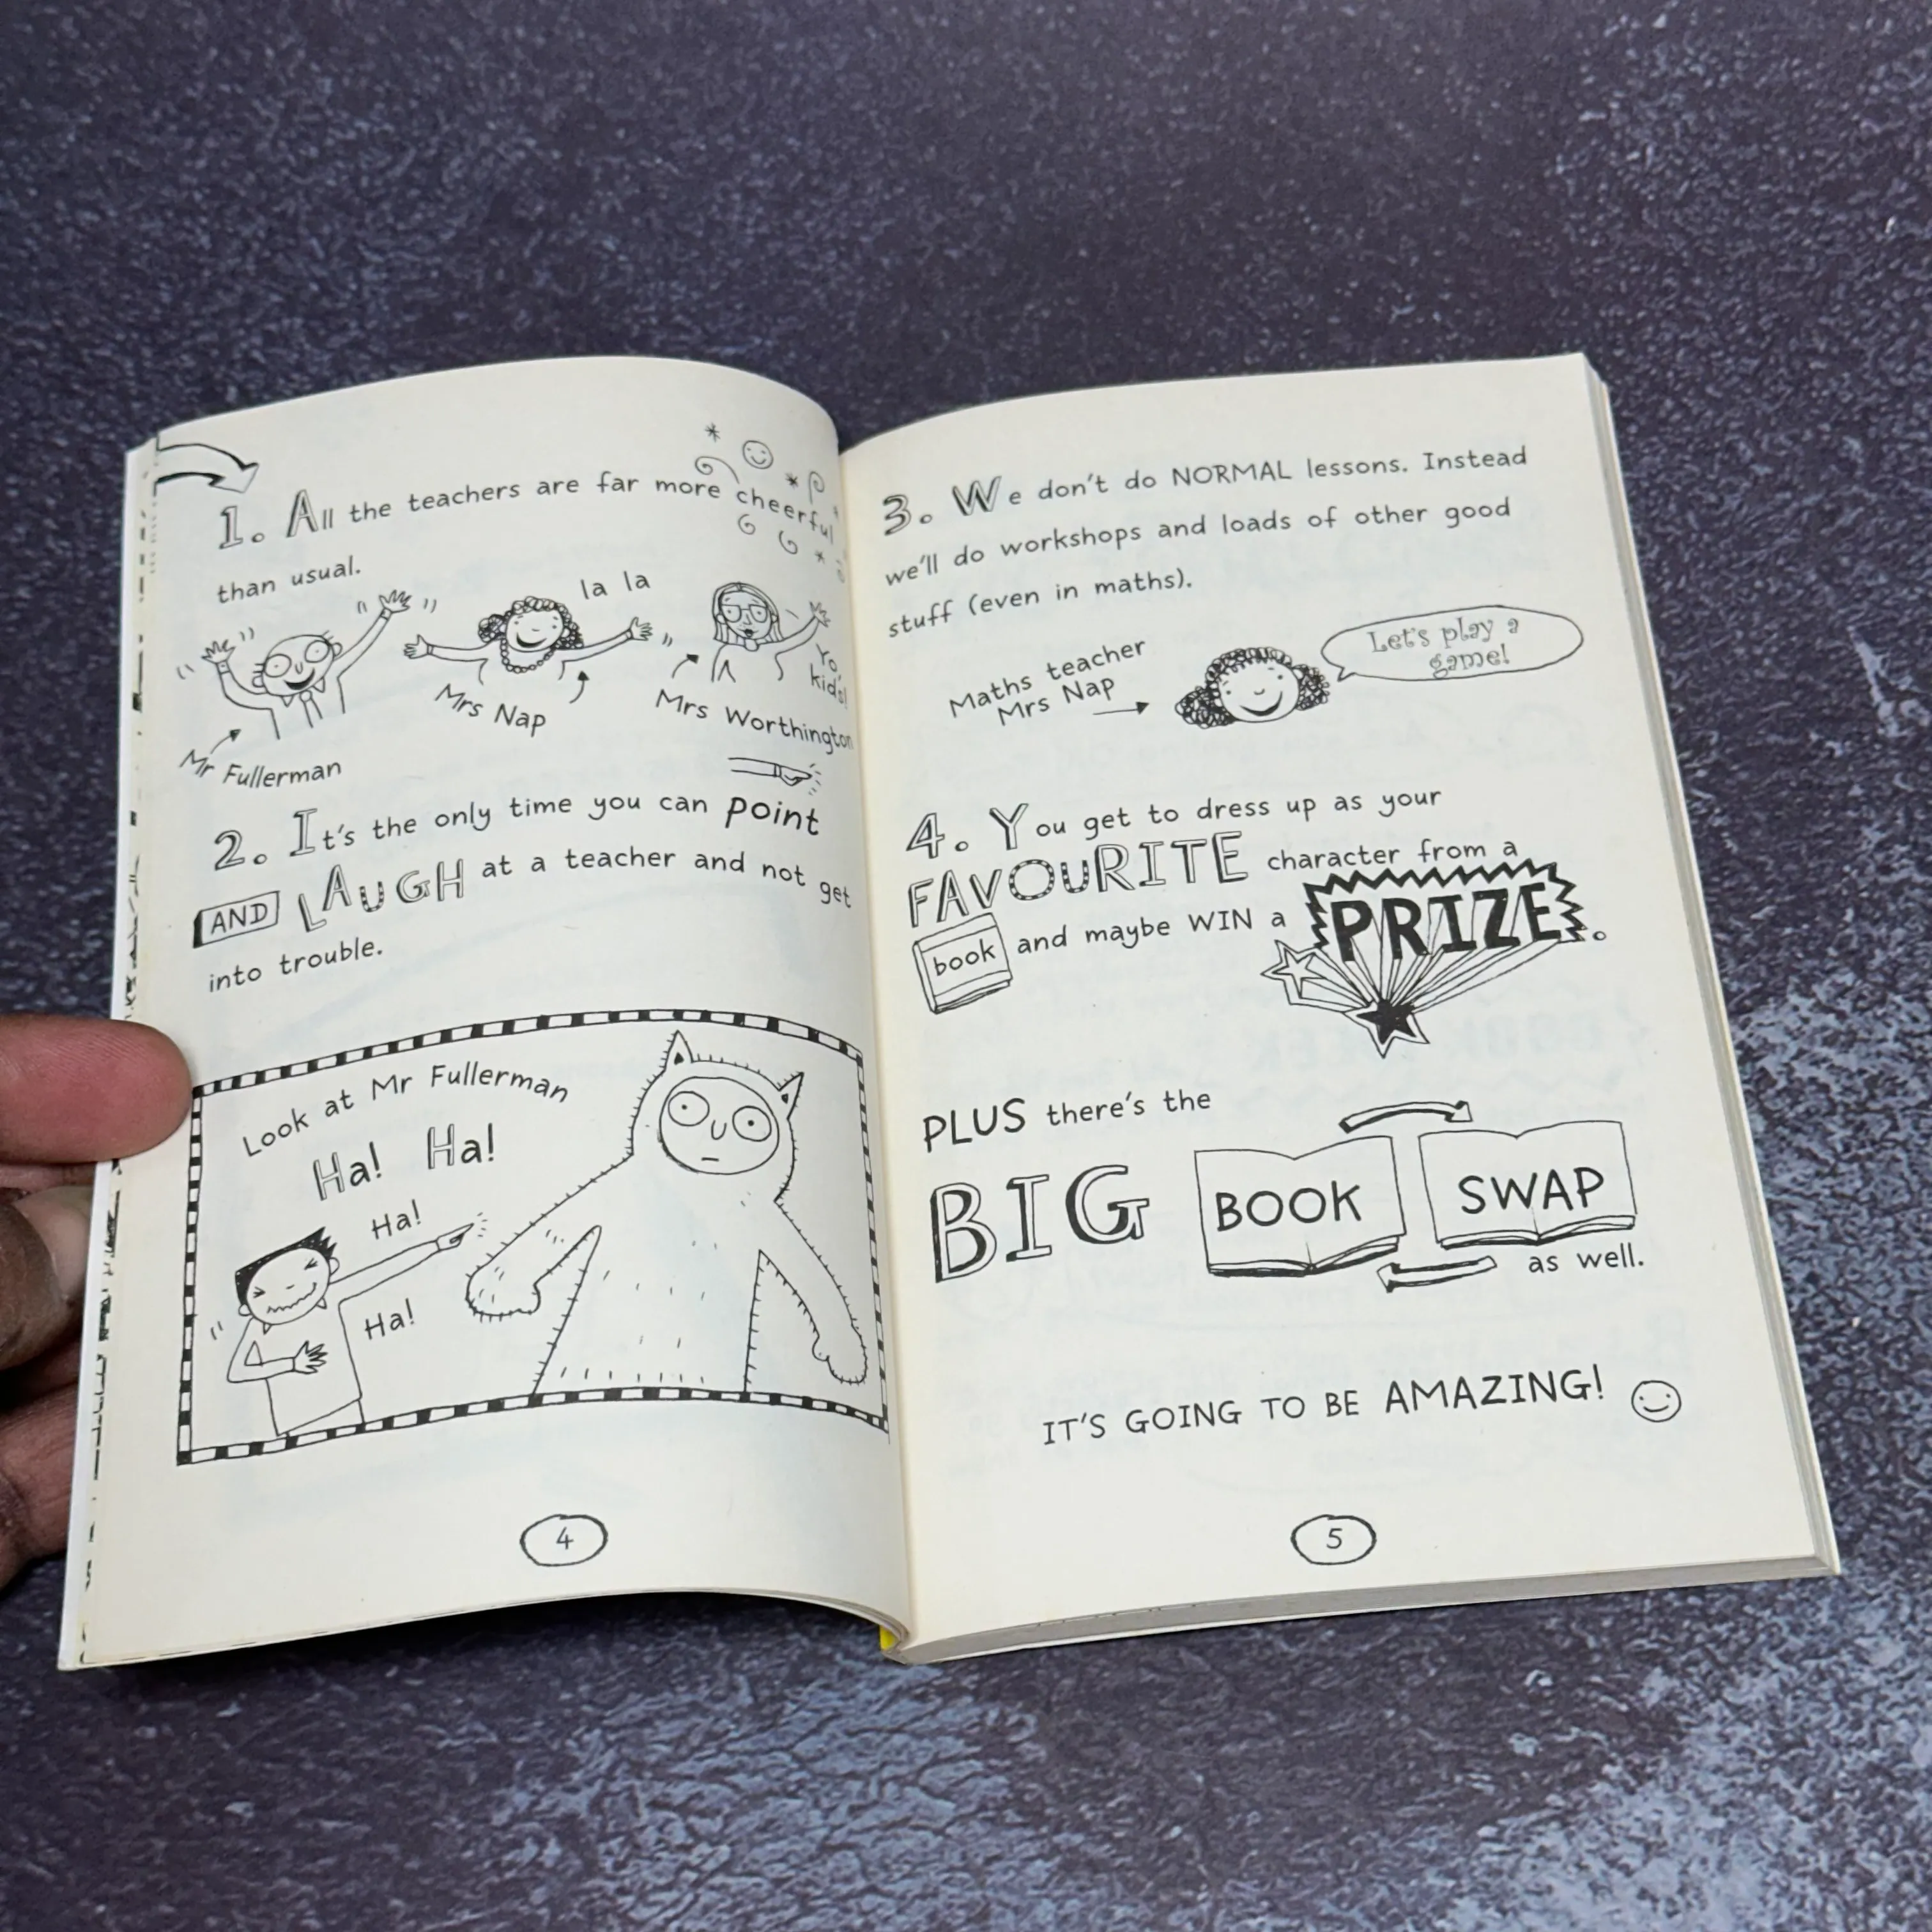 1. All the teachers are far more cheerful
than usual.
la la
Yo,
kids!
Mr Fullerman
Mrs Nap
Mrs Worthington
2. It's the only time you can point
AND LAUGH at a teacher and not get
into trouble.
Look at Mr Fullerman
Ha! Ha!
Ha!
Ha!
4
3. We don't do NORMAL lessons. Instead
we'll do workshops and loads of other good
stuff (even in maths).
Maths teacher
Mrs Nap
Let's play a
game!
4. You get to dress up as your
FAVOURITE character from a
book and maybe WIN a PRIZE.
PLUS there's the
BIG BOOK SWAP
as well.
IT'S GOING TO BE AMAZING!
5